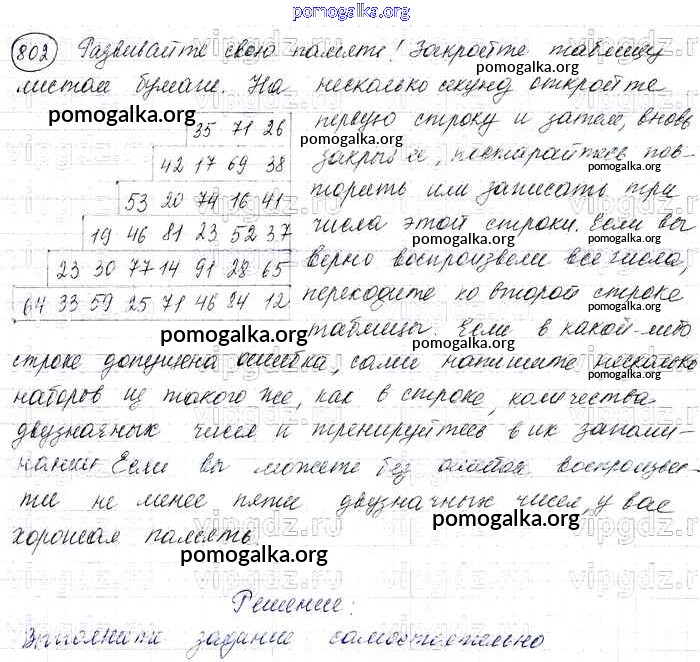 pomogalka.org
802 Развивайте свою память! Закройте таблицу
листом бумаги. На несколько секунд откройте
pomogalka.org
pomogalka.org
35 71 26 первую строку и затем, вновь
pomogalka.org
42 17 69 38 закрыв её, постарайтесь пов-
pomogalka.org
53 20 74 16 41 торить или записать три
19 46 81 23 52 37 числа этой строки. Если вы
pomogalka.org
23 30 77 14 91 28 65 верно воспроизвели все числа,
64 33 59 25 71 46 84 12 переходите ко второй строке
pomogalka.org
pomogalka.org
таблицы. Если в какой-либо
pomogalka.org
строке допущена ошибка, сами напишите несколько
pomogalka.org
наборов из такого же, как в строке, количества
двузначных чисел и тренируйтесь в их запоми-
нании. Если вы можете без ошибок воспроизвес-
ти не менее пяти двузначных чисел, у вас
pomogalka.org
хорошая память.
pomogalka.org
vipgdz.ru
Решение:
Выполните задание самостоятельно